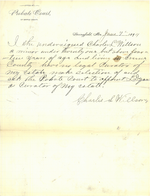 Probate Court,
Springfield Mo June 2nd 188
I the undersigned Charles Nelson
a minor under twenty one but above four-
teen years of age and living in Greene
County have no legal Curator of
my estate make selection of and
ask the Probate Court to appoint
as Curator of my estate.
Charles A. Nelson